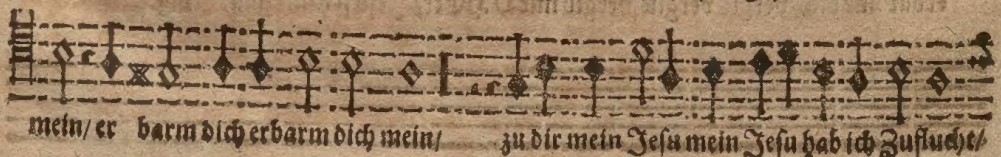 mein/ er barm dich erbarm dich mein/ zu dir mein Jesu mein Jesu hab ich Zuflucht/